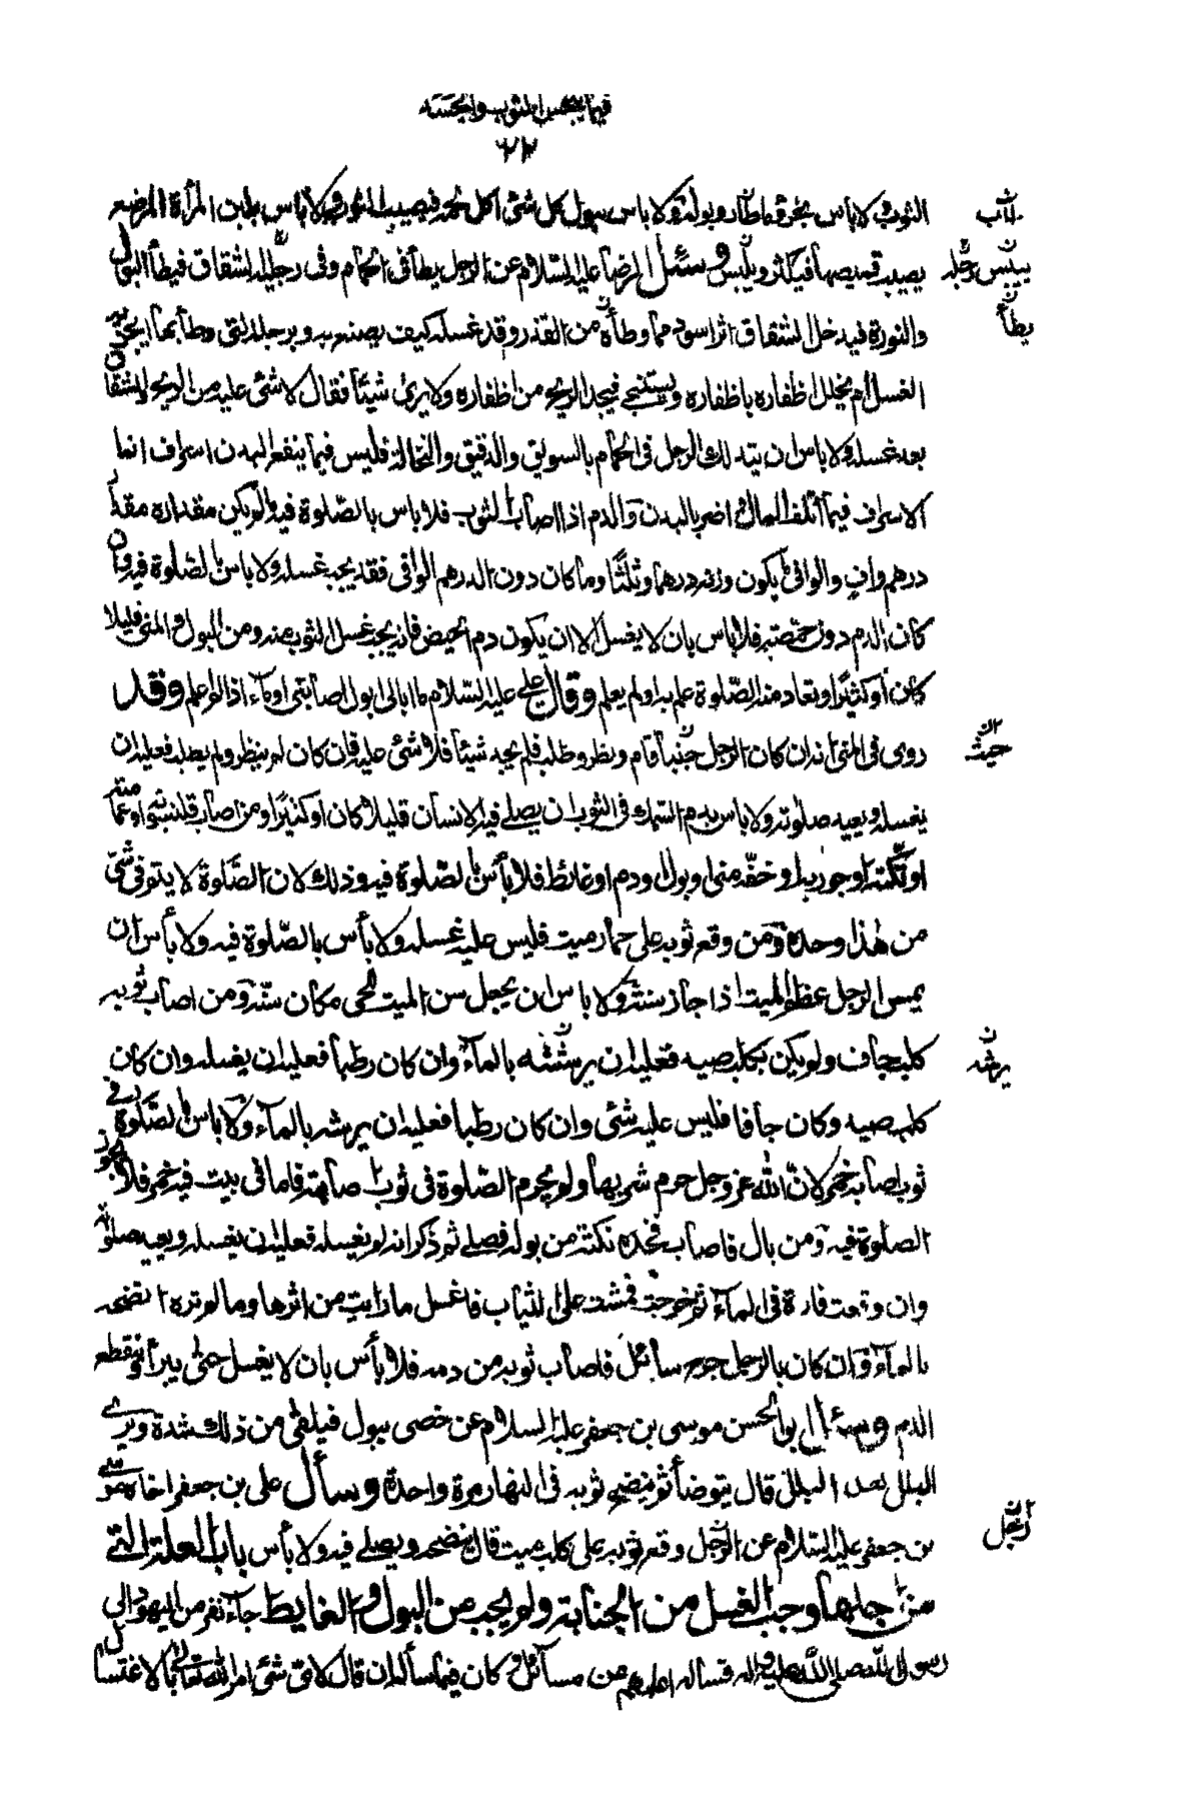 فيما ينجس الثوب والجسد
٤٢
الثوب ولا بأس بخرؤ ما طار وبوله ولا باس ببول كل شئ اكل لحمه فيصيب الثوب ولا باس بلبن المرأة المرضعه
يصيب قميصها فيكثر وييبس وسئل الرضا عليه السلام عن الرجل يطأ في الحمام وفي رجليه الشقاق فيطأ البول
والنورة فيدخل الشقاق اثر اسود مما وطأه من القذر وقد غسله كيف يصنع به وبرجله التي وطأ بها ايجزيه
الغسل ام يخلل اظفاره باظفاره ويستنجي فيجد الريح من اظفاره ولا يرى شيئا فقال لا شئ عليه من الريح والشقاق
بعد غسله ولا باس ان يتدلك الرجل في الحمام بالسويق والدقيق والنخالة فليس فيما ينفع البدن اسراف انما
الاسراف فيما اتلف المال واضر بالبدن والدم اذا اصاب الثوب فلا باس بالصلوة فيه ما لم يكن مقداره مقدار
درهم واف والوافي ما يكون وزنه درهما وثلثا وما كان دون الدرهم الوافي فقد يجب غسله ولا باس بالصلوة فيه وان
كان الدم دون حمصة فلا باس بان لا يغسل الا ان يكون دم الحيض فانه يجب غسل الثوب منه ومن البول والمني قليلا
كان أو كثيرا وتعاد منه الصلوة علم به او لم يعلم وقال علي عليه السلام ما ابالي ابول اصابني او ماء اذا لم اعلم وقد
روى في المني انه ان كان الرجل جنبا قام ونظر وطلب فلم يجد شيئا فلا شئ عليه فان كان لم ينظر ولم يطلب فعليه ان
يغسله ويعيد صلوته ولا باس بدم السمك في الثوب ان يصلي فيه الانسان قليلا كان او كثيرا ومن اصاب قلنسوته او عمامته
او تكته او جوربه او خفه مني او بول او دم او غائط فلا بأس بالصلوة فيه وذلك لان الصلوة لا يتم في شئ
من هذا وحده ومن وقع ثوبه على حمار ميت فليس عليه غسله ولا بأس بالصلوة فيه ولا بأس ان
يمس الرجل عظم الميت اذا جاز سنة ولا باس ان يجعل سن الميت للحي مكان سنه ومن اصاب ثوبه
كلب جاف ولم يكن بكلب صيد فعليه ان يرشه بالماء وان كان رطبا فعليه ان يغسله وان كان
كلب صيد وكان جافا فليس عليه شئ وان كان رطبا فعليه ان يرشه بالماء ولا باس بالصلوة في
ثوب اصابه خمر لان الله عز وجل حرم شربها ولم يحرم الصلوة في ثوب اصابته فاما في بيت فيه خمر فلا يجوز
الصلوة فيه ومن بال فاصاب فخذه نكتة من بوله فصلى ثم ذكر انه لم يغسله فعليه ان يغسله ويعيد صلوته
وان وقعت فارة في الماء ثم خرجت فمشت على الثياب فاغسل ما رايت من اثرها وما لم تره انضحه
بالماء وان كان بالرجل جرح سائل فاصاب ثوبه من دمه فلا بأس بان لا يغسل حتى يبرأ وينقطع
الدم وسئل ابو الحسن موسى بن جعفر عليه السلام عن خصي يبول فيلقى من ذلك شدة ويرى
البلل بعد البلل قال يتوضأ ثم ينضح ثوبه في النهار مرة واحدة وسأل علي بن جعفر اخاه موسى
بن جعفر عليه السلام عن الرجل وقع ثوبه على كلب ميت قال ينضحه ويصلي فيه ولا بأس باب العلة التي
من اجلها وجب الغسل من الجنابة ولم يجب من البول والغايط جاء نفر من اليهود الى
رسول الله صلى الله عليه واله فسأله اعلمهم عن مسائل وكان فيما سأله ان قال لاي شئ امر الله تعالى بالاغتسال
ييبس رجله
يطأ
حيث
يرشه
الرجل